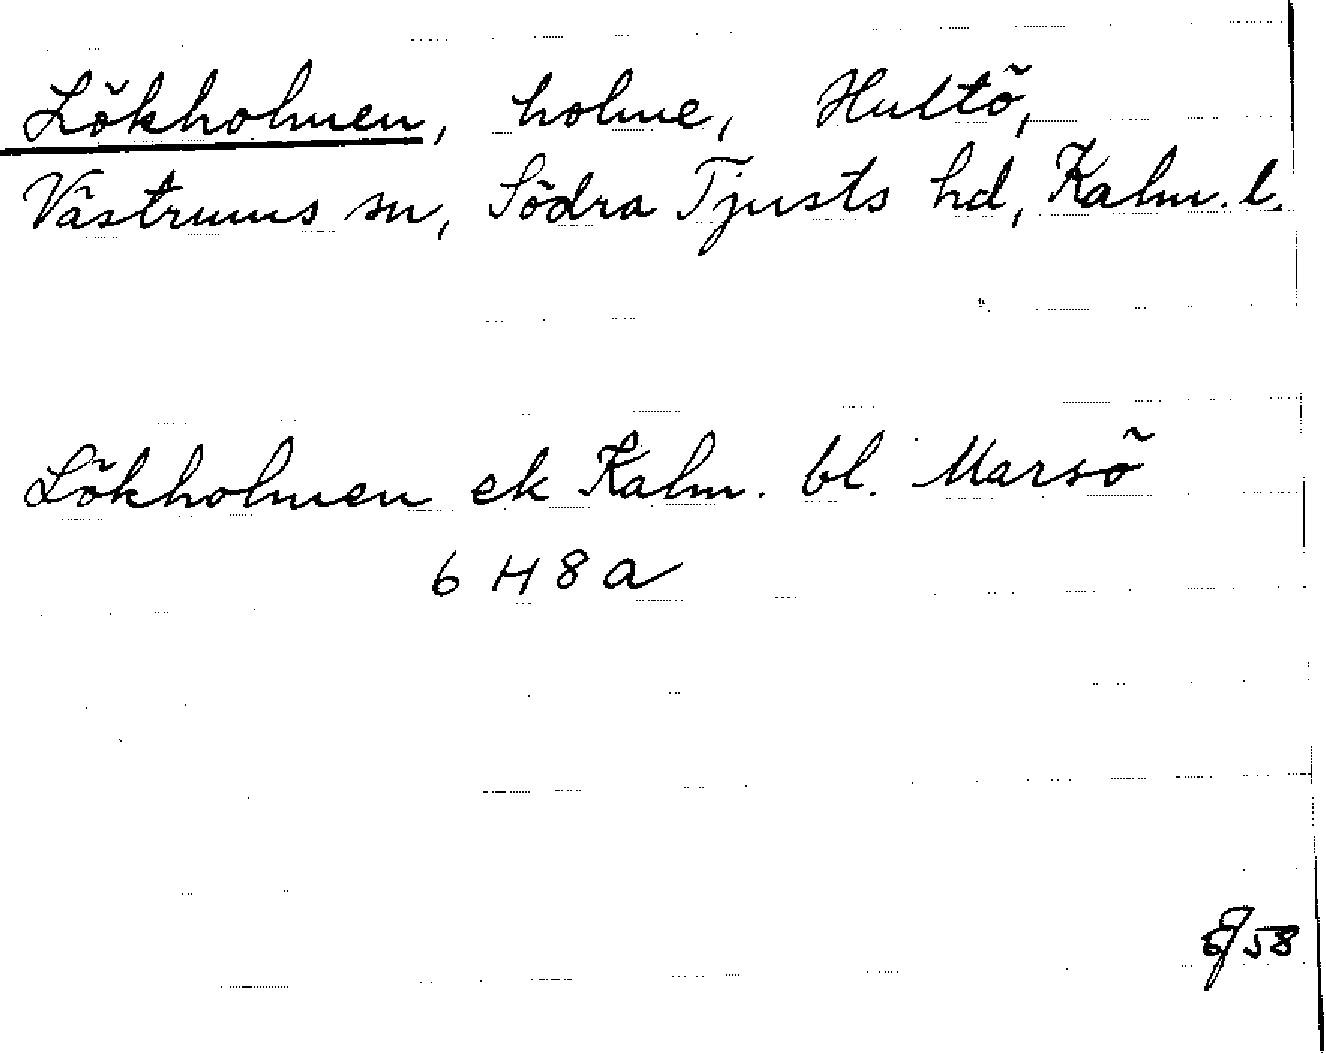 Lökholmen, holme, Hultö,
Västrums sn, Södra Tjusts hd, Kalm. l.
Lökholmen ek Kalm. bl. Marsö
6 H 8 a
58